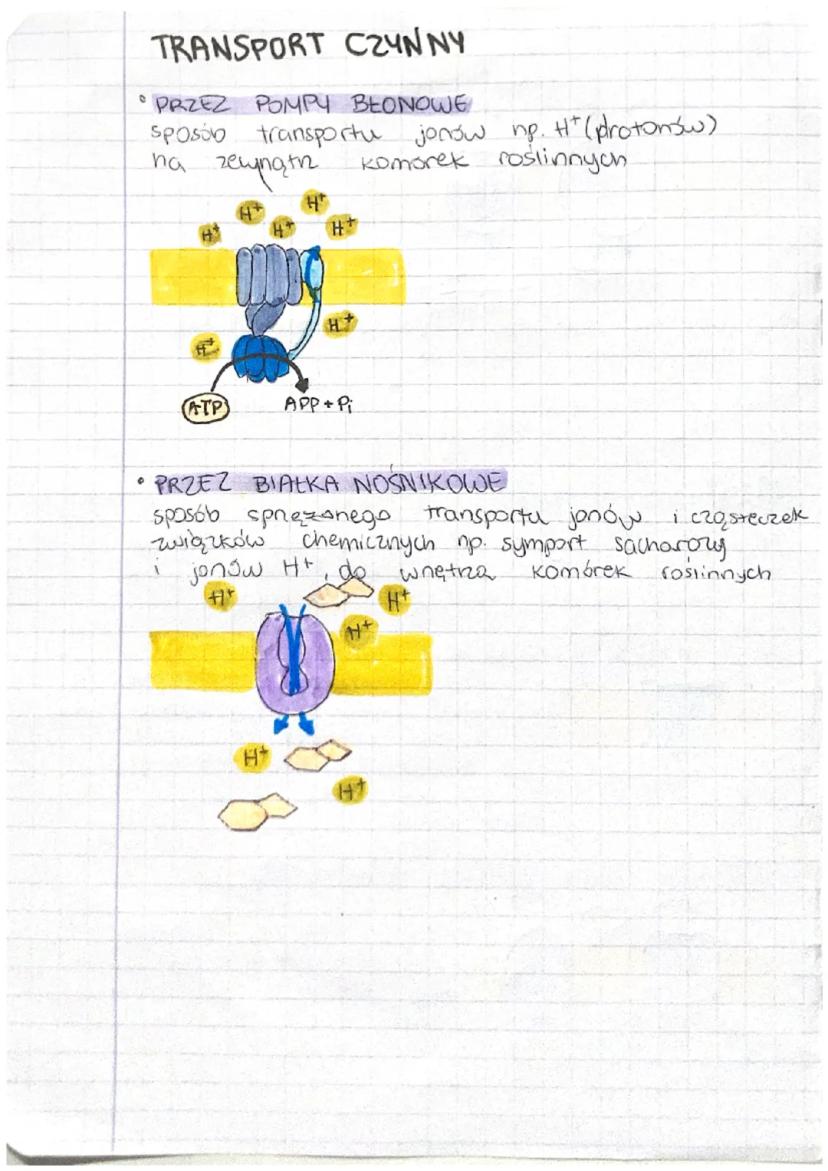 TRANSPORT CZYNNY
• PRZEZ POMPY BŁONOWE
sposób transportu jonów np. H+ (protonów)
na zewnątrz komórek roślinnych
H+ H+ H+ H+ H+
H+
H+
ATP ADP + Pi
• PRZEZ BIAŁKA NOŚNIKOWE
sposób sprzężonego transportu jonów i cząsteczek
związków chemicznych np. symport sacharozy
i jonów H+, do wnętrza komórek roślinnych
H+ H+
H+
H+
H+